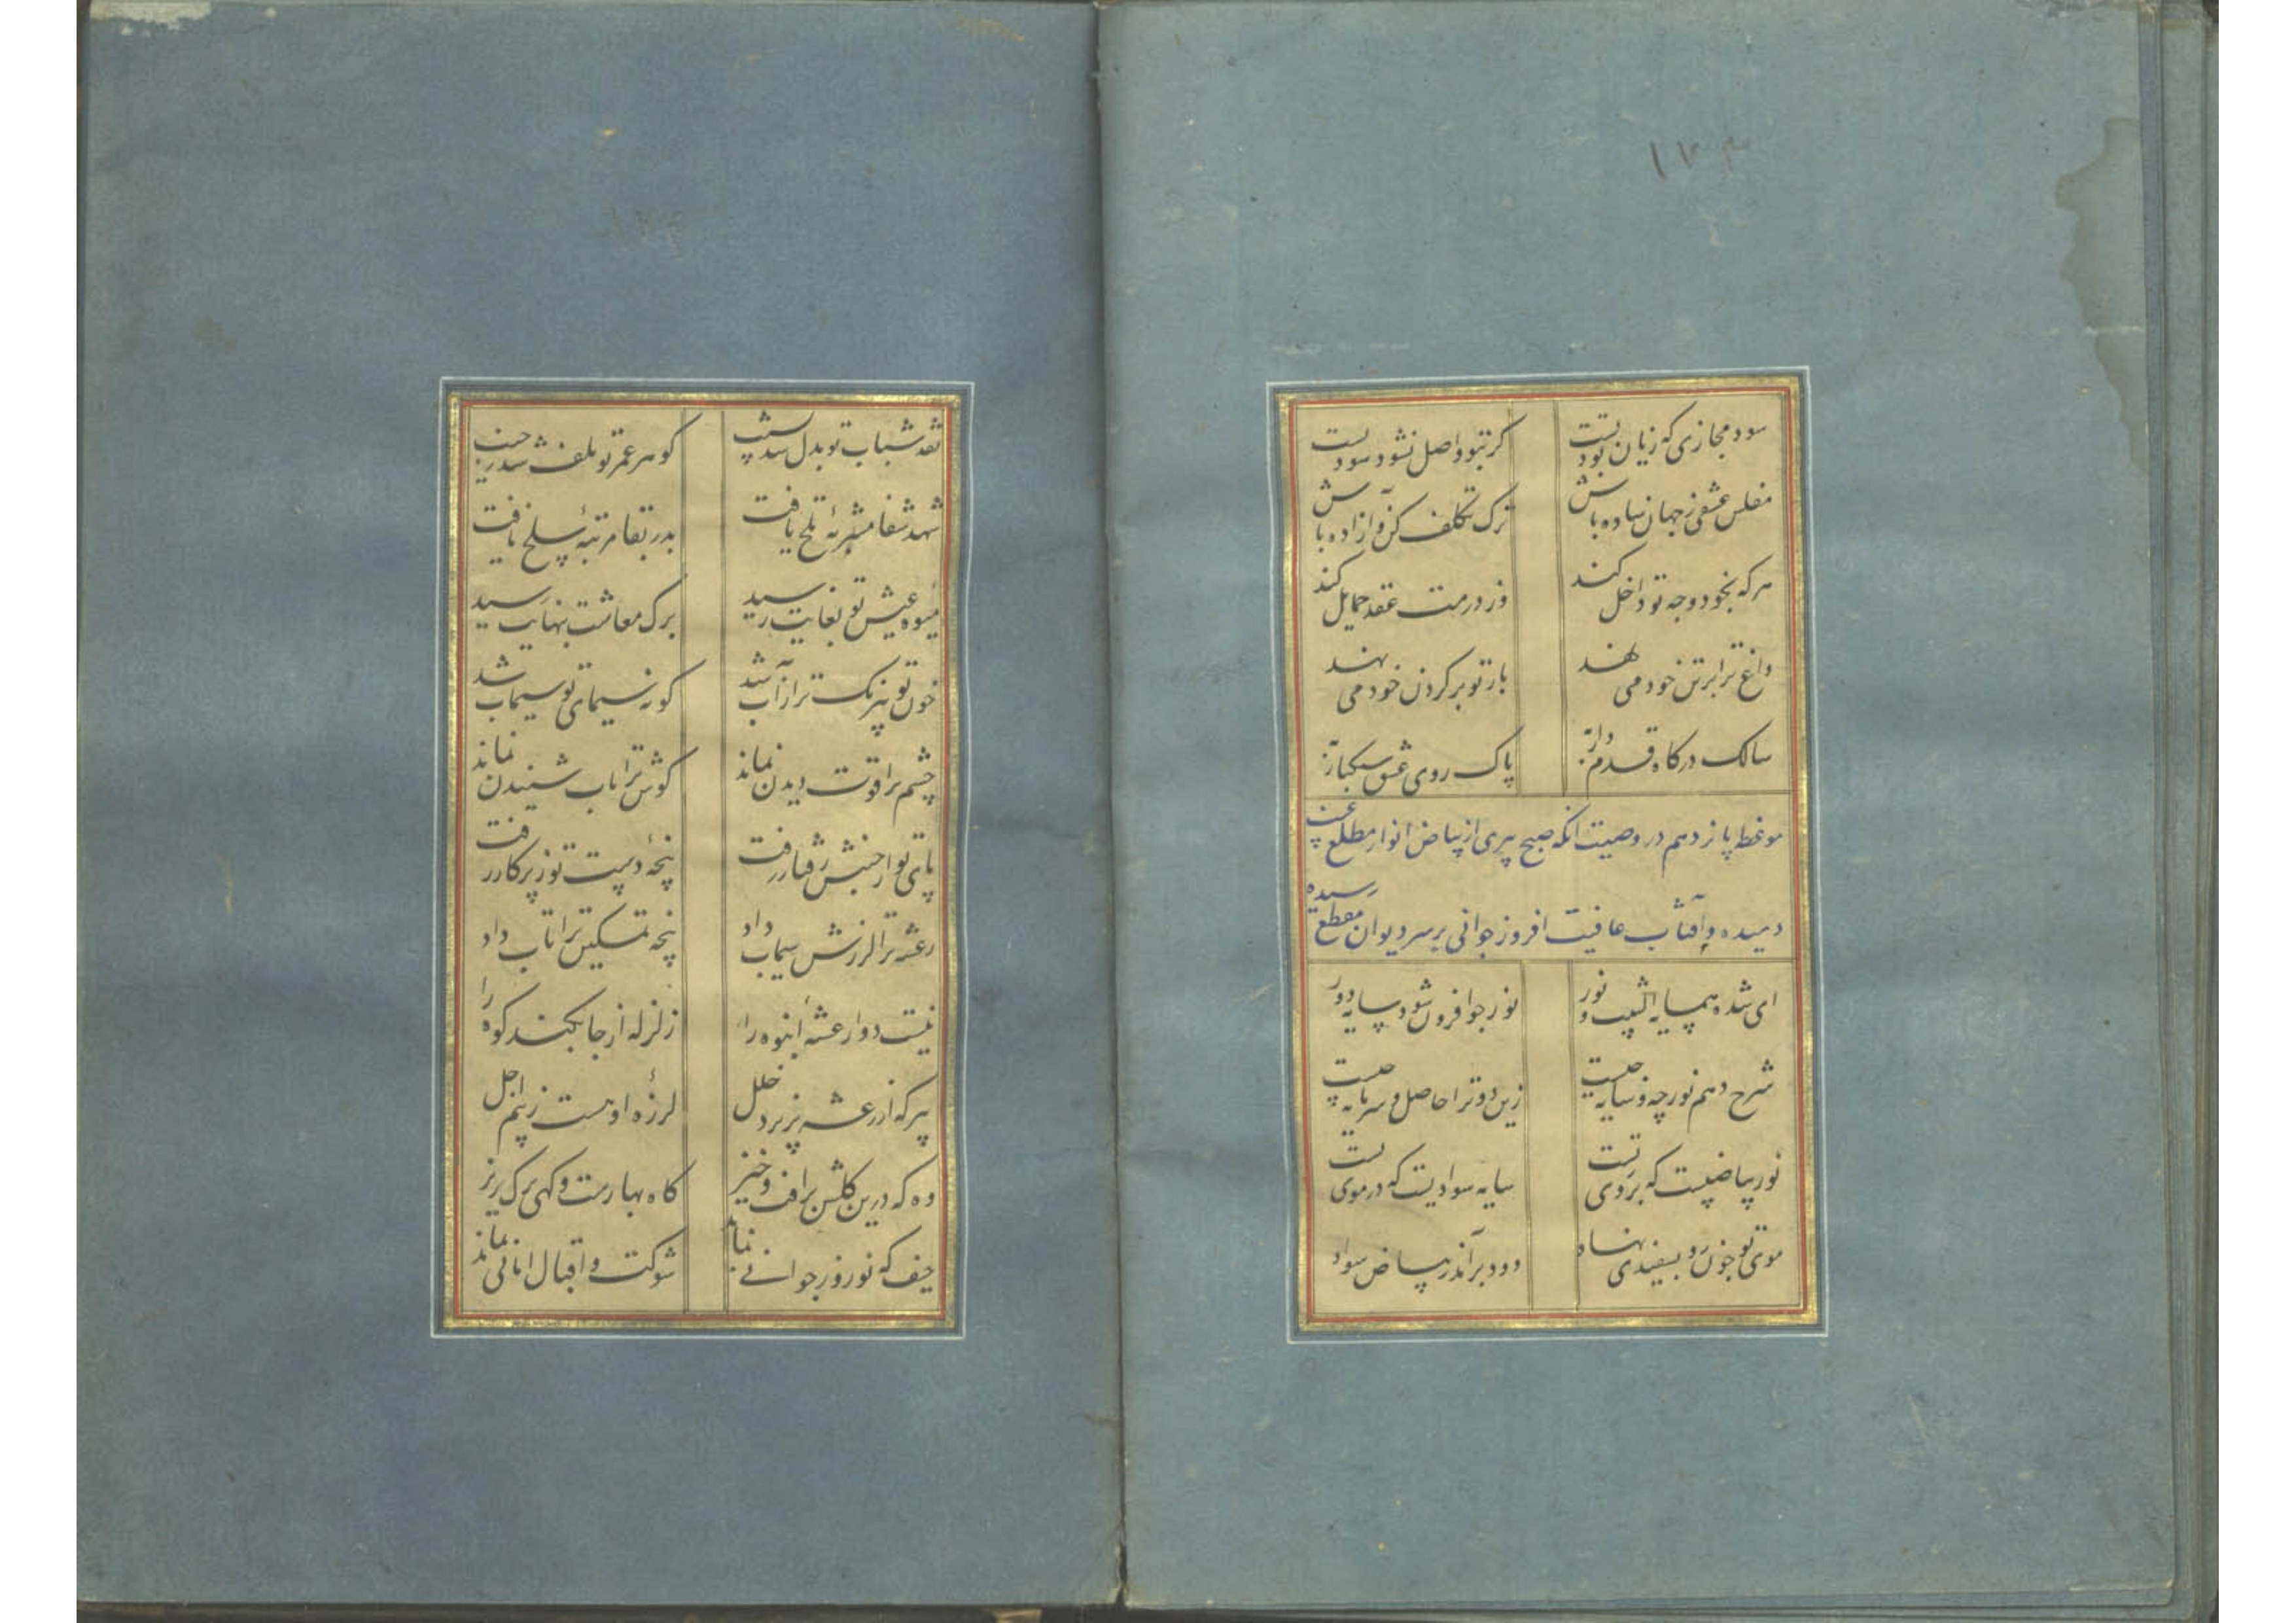 ۱۳۴
سود مجازی که زیان بودتست
گر بتو واصل نشود سود تست
مفلس عشقی ز جهان ساده باش
ترک تکلف کن و آزاده باش
هر که بخود وجه تو داخل کند
وز درمت عقد حمایل کند
داغ ترا بر تن خود می نهد
بار تو بر گردن خود می نهد
سالک درگاه قدم
پاک روی عشق سبکبار
موعظه پانزدهم در وصیت آنکه صبح پیری از بیاض انوار مطلع
دمیده و آفتاب عافیت افروز جوانی بر سر دیوان مقطع رسیده
ای شده همسایه شیب و نور
نور جو افزون شود سایه دور
شرح دهم نور چه و سایه چیست
زین دو ترا حاصل و سرمایه چیست
نور بیاضیست که بر روی تست
سایه سوادیست که در موی تست
موی تو چون رو بسفیدی نهاد
دود بر آمد ز بیاض سواد
نقد شباب تو بدل شد بشیب
گوهر عمر تو تلف شد ز جیب
شهد شفا مشربه تلخ یافت
بدر بقا مرتبه سلخ یافت
میوه عیش تو بغایت رسید
برک معاشت بنهایت رسید
خون تو بیرنک تر از آب شد
گونه سیمای تو سیماب شد
چشم ترا قوت دیدن نماند
گوش ترا تاب شنیدن نماند
پای تو از جنبش رفتار رفت
پنجه دست تو ز پرکار رفت
رعشه ترا لرزش سیماب داد
پنجه تمسکین ترا تاب داد
نیست دوا رعشه انبوه را
زلزله از جا بکند کوه را
پیر که از رعشه پذیرد خلل
لرزه او هست ز بیم اجل
وه که درین گلشن پر افت و خیز
گاه بهارست و گهی برک ریز
حیف که نوروز جوانی نماند
شوکت و اقبال امانی نماند